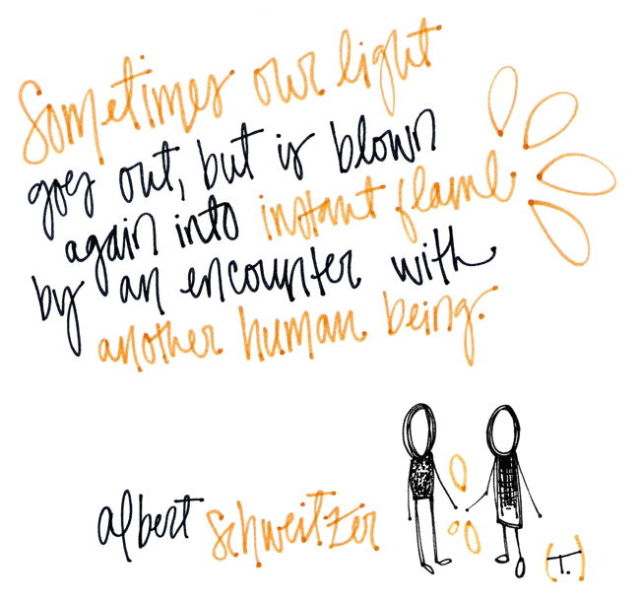 Sometimes our light
goes out, but is blown
again into instant flame
by an encounter with
another human being.
albert Schweitzer
(T.)